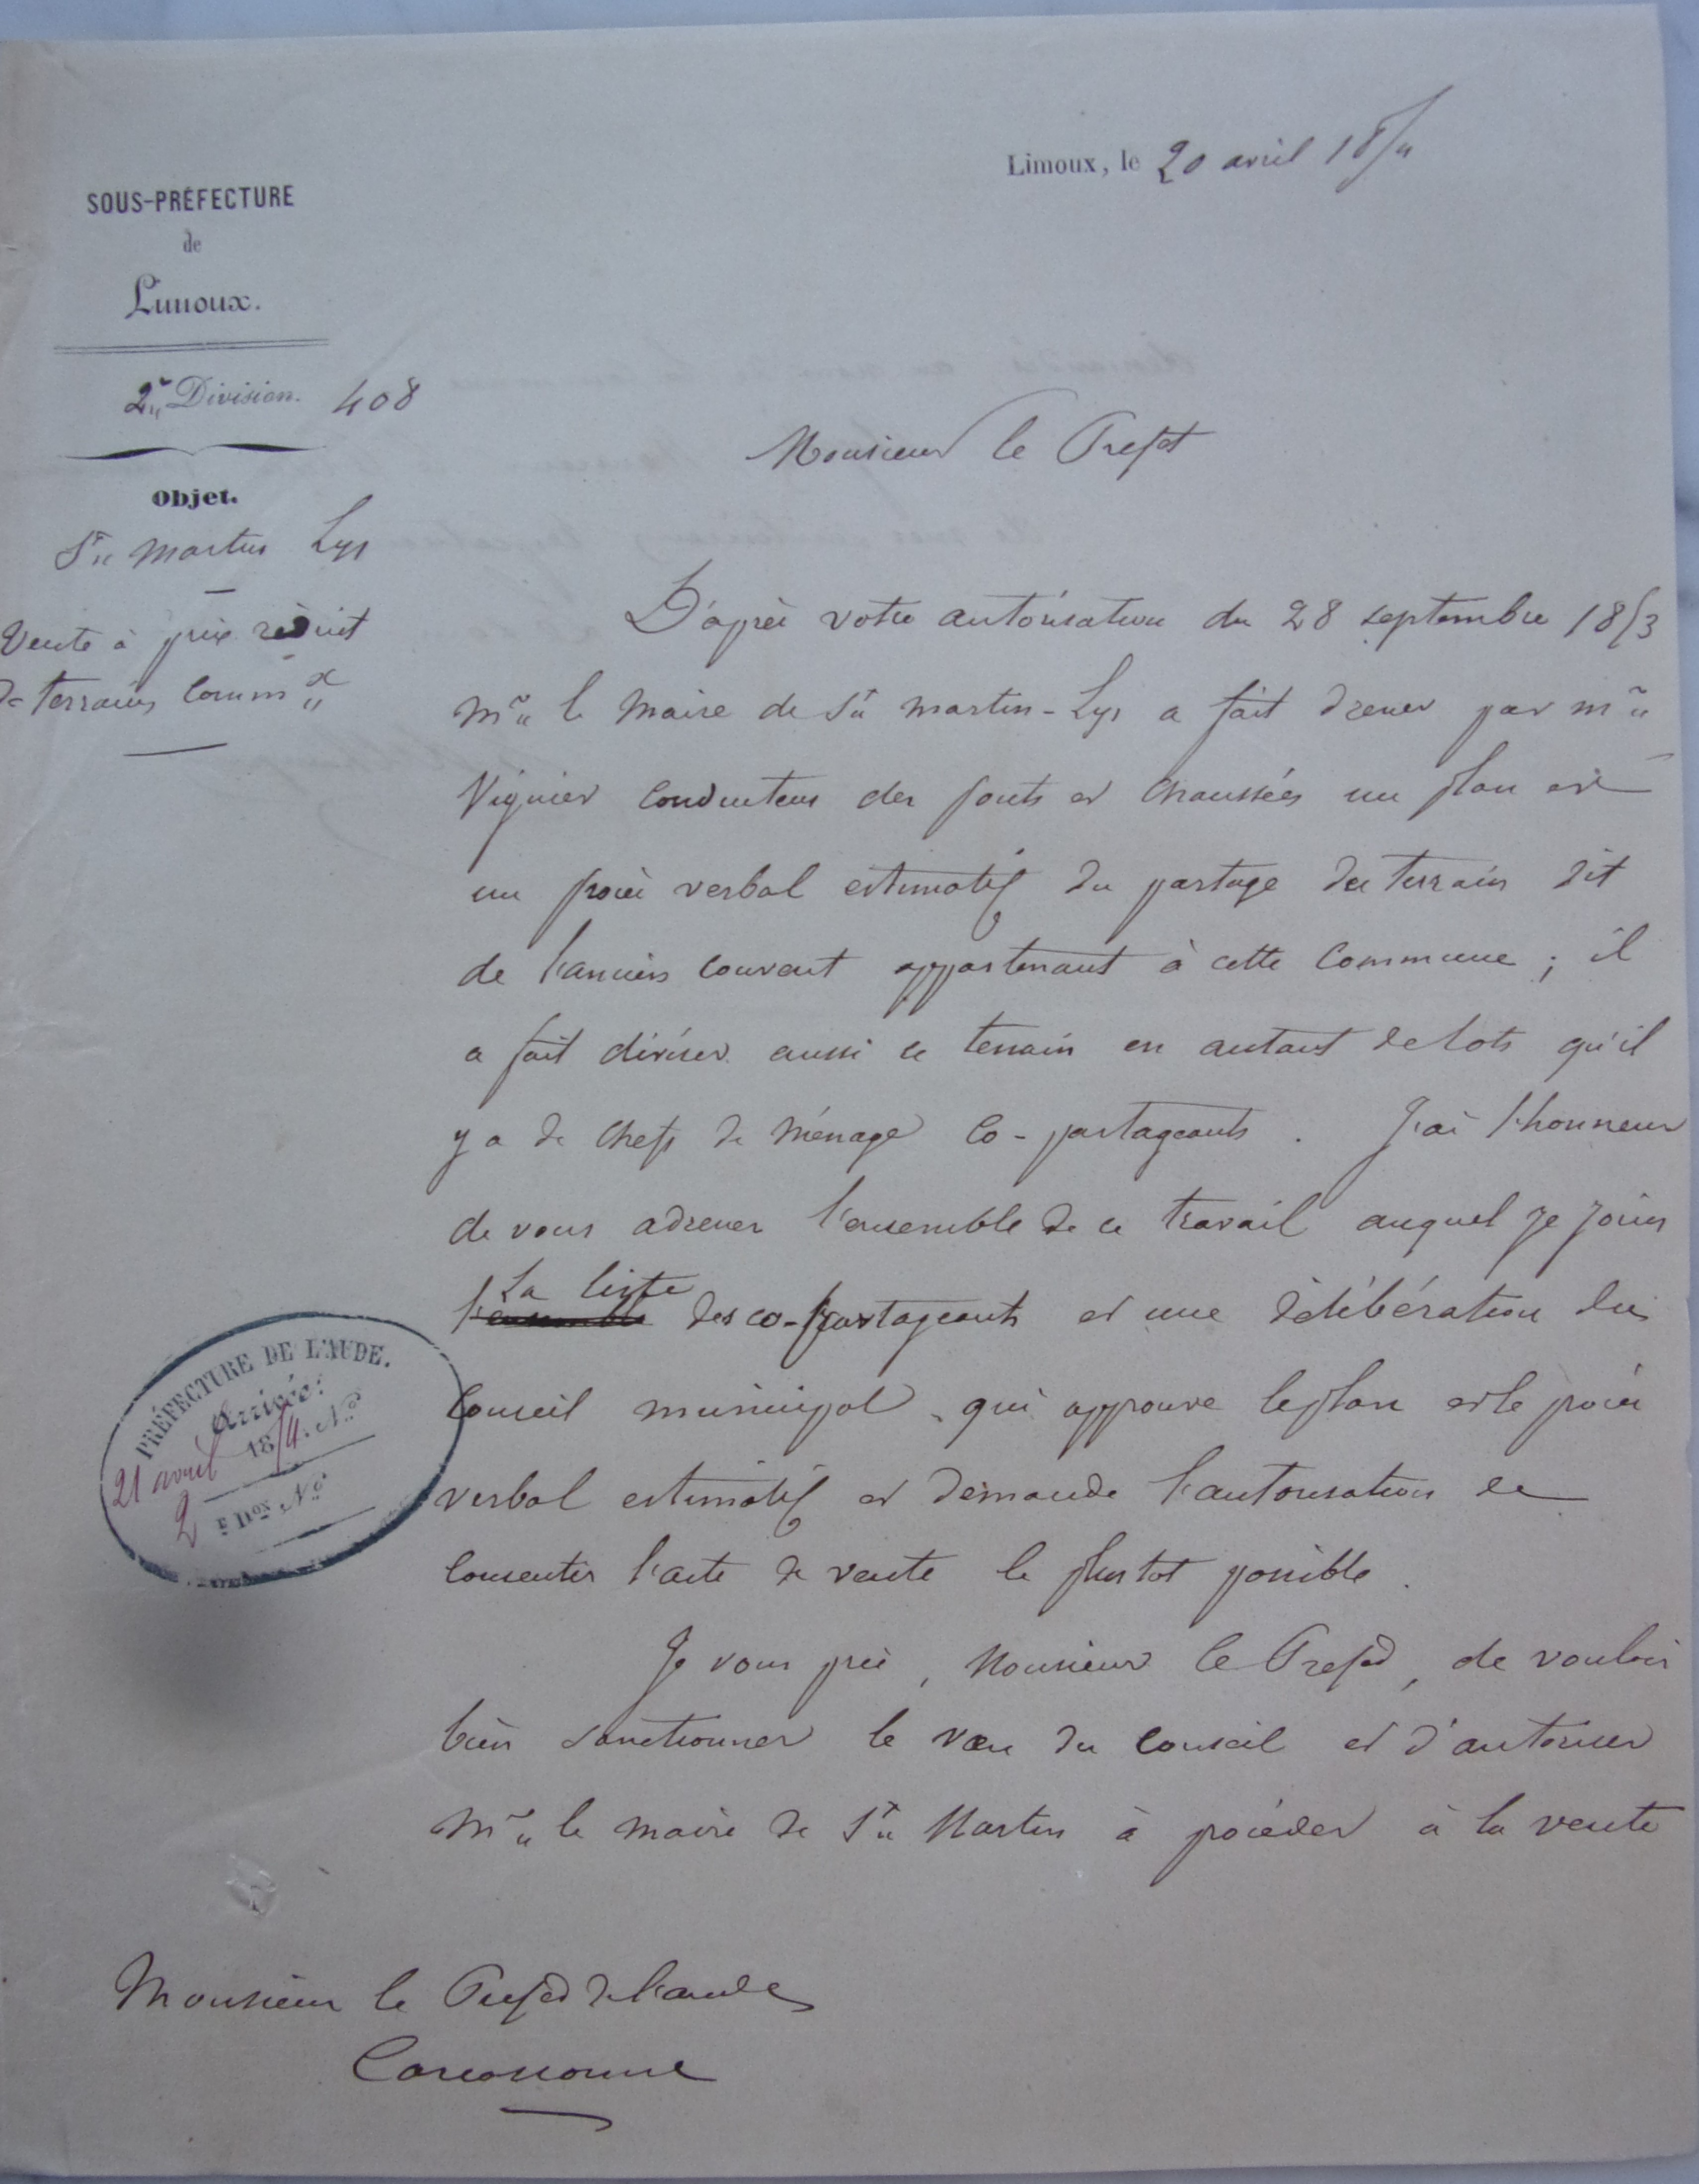 Limoux, le 20 avril 1854
SOUS-PRÉFECTURE
de
Limoux.
2e Division. 408
Objet.
St Martin Lys
Vente à prix réduit
de terrains commx
Monsieur le Prefet
D'après votre autorisation du 28 septembre 1853
Mr le Maire de St Martin-Lys a fait dresser par Mr
Viguier conducteur des ponts et chaussées un plan et
un procès verbal estimatif du partage du terrain dit
de l'ancien couvent appartenant à cette commune ; il
a fait diviser aussi ce terrain en autant de lots qu'il
y a de chefs de ménage co-partageants. J'ai l'honneur
de vous adresser l'ensemble de ce travail auquel je joins
La liste
l'ensemble des co-partageants et une délibération du
conseil municipal qui approuve le plan et le procès
verbal estimatif et demande l'autorisation de
consentir l'acte de vente le plus tot possible.
Je vous prie, Monsieur le Prefet, de vouloir
bien sanctionner le vœu du conseil et d'autoriser
Mr le maire de St Martin à procéder à la vente
PRÉFECTURE DE L'AUDE.
Arrivée:
21 avril 1854. No
2
Don No
Monsieur le Prefet de l'aude
Carcassonne